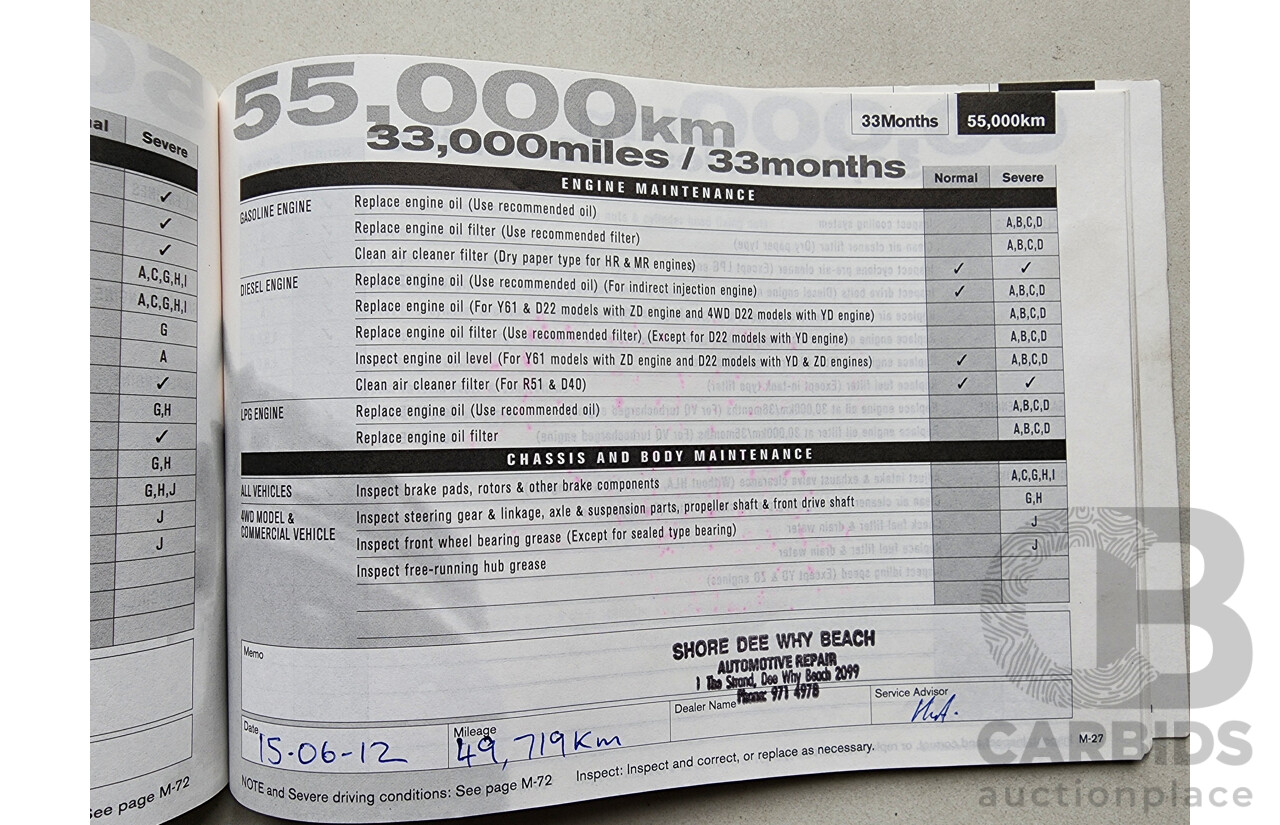 al Severe
✓
✓
✓
A,C,G,H,I
A,C,G,H,I
G
A
✓
G,H
✓
G,H
G,H,J
J
J
See page M-72
55,000km
33,000miles / 33months
33Months 55,000km
ENGINE MAINTENANCE Normal Severe
GASOLINE ENGINE Replace engine oil (Use recommended oil) A,B,C,D
Replace engine oil filter (Use recommended filter) A,B,C,D
Clean air cleaner filter (Dry paper type for HR & MR engines) ✓ ✓
DIESEL ENGINE Replace engine oil (Use recommended oil) (For indirect injection engine) ✓ A,B,C,D
Replace engine oil (For Y61 & D22 models with ZD engine and 4WD D22 models with YD engine) A,B,C,D
Replace engine oil filter (Use recommended filter) (Except for D22 models with YD engine) A,B,C,D
Inspect engine oil level (For Y61 models with ZD engine and D22 models with YD & ZD engines) ✓ A,B,C,D
Clean air cleaner filter (For R51 & D40) ✓ ✓
LPG ENGINE Replace engine oil (Use recommended oil) A,B,C,D
Replace engine oil filter A,B,C,D
CHASSIS AND BODY MAINTENANCE
ALL VEHICLES Inspect brake pads, rotors & other brake components A,C,G,H,I
4WD MODEL & COMMERCIAL VEHICLE Inspect steering gear & linkage, axle & suspension parts, propeller shaft & front drive shaft G,H
Inspect front wheel bearing grease (Except for sealed type bearing) J
Inspect free-running hub grease J
Memo
SHORE DEE WHY BEACH
AUTOMOTIVE REPAIR
1 The Strand, Dee Why Beach 2099
Phone: 971 4978
Date 15-06-12 Mileage 49,719Km Dealer Name Service Advisor
NOTE and Severe driving conditions: See page M-72 Inspect: Inspect and correct, or replace as necessary. M-27
CARBIDS
auctionplace